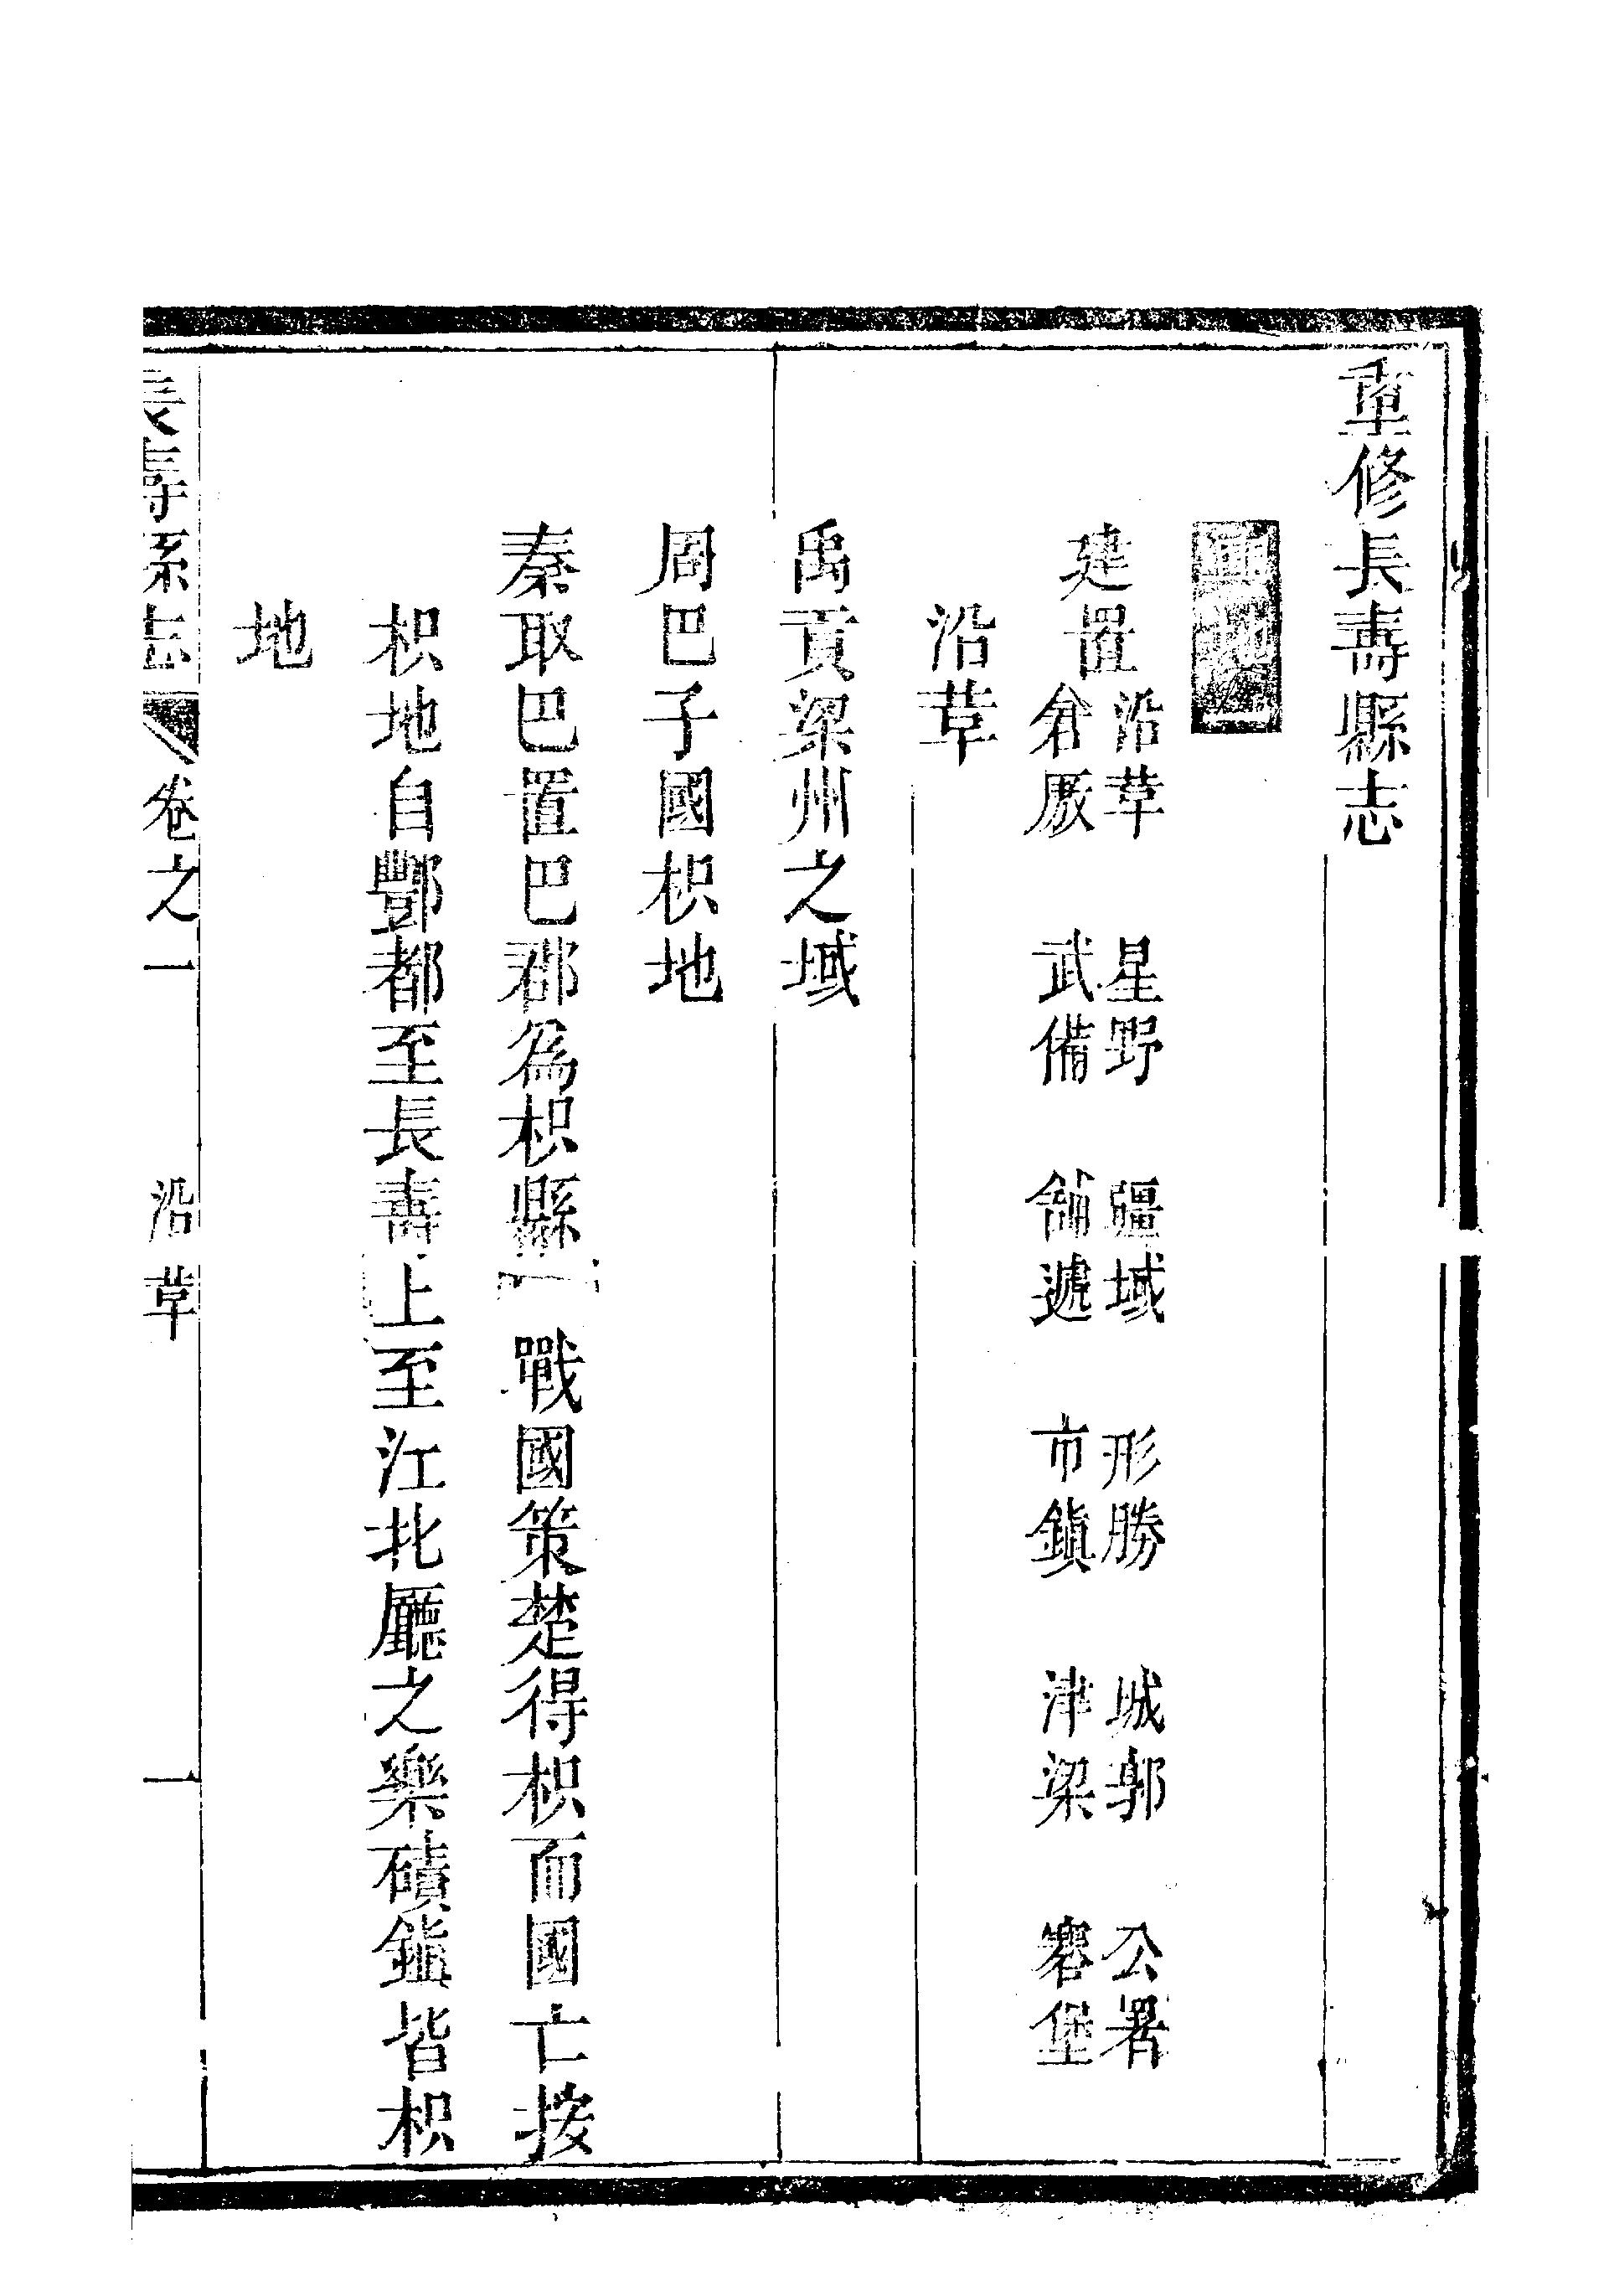 重修長壽縣志
輿地
建置
沿革　星野　疆域　形勝　城郭　公署
倉厫　武備　舖遞　市鎮　津梁　寨堡
沿革
禹貢梁州之域
周巴子國枳地
秦取巴置巴郡爲枳縣　戰國策楚得枳而國亡按
枳地自酆都至長壽上至江北廳之樂磧鎮皆枳
地
長壽縣志　卷之一　沿革　一